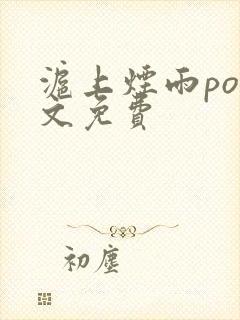 滬上煙雨po
文免費
初塵